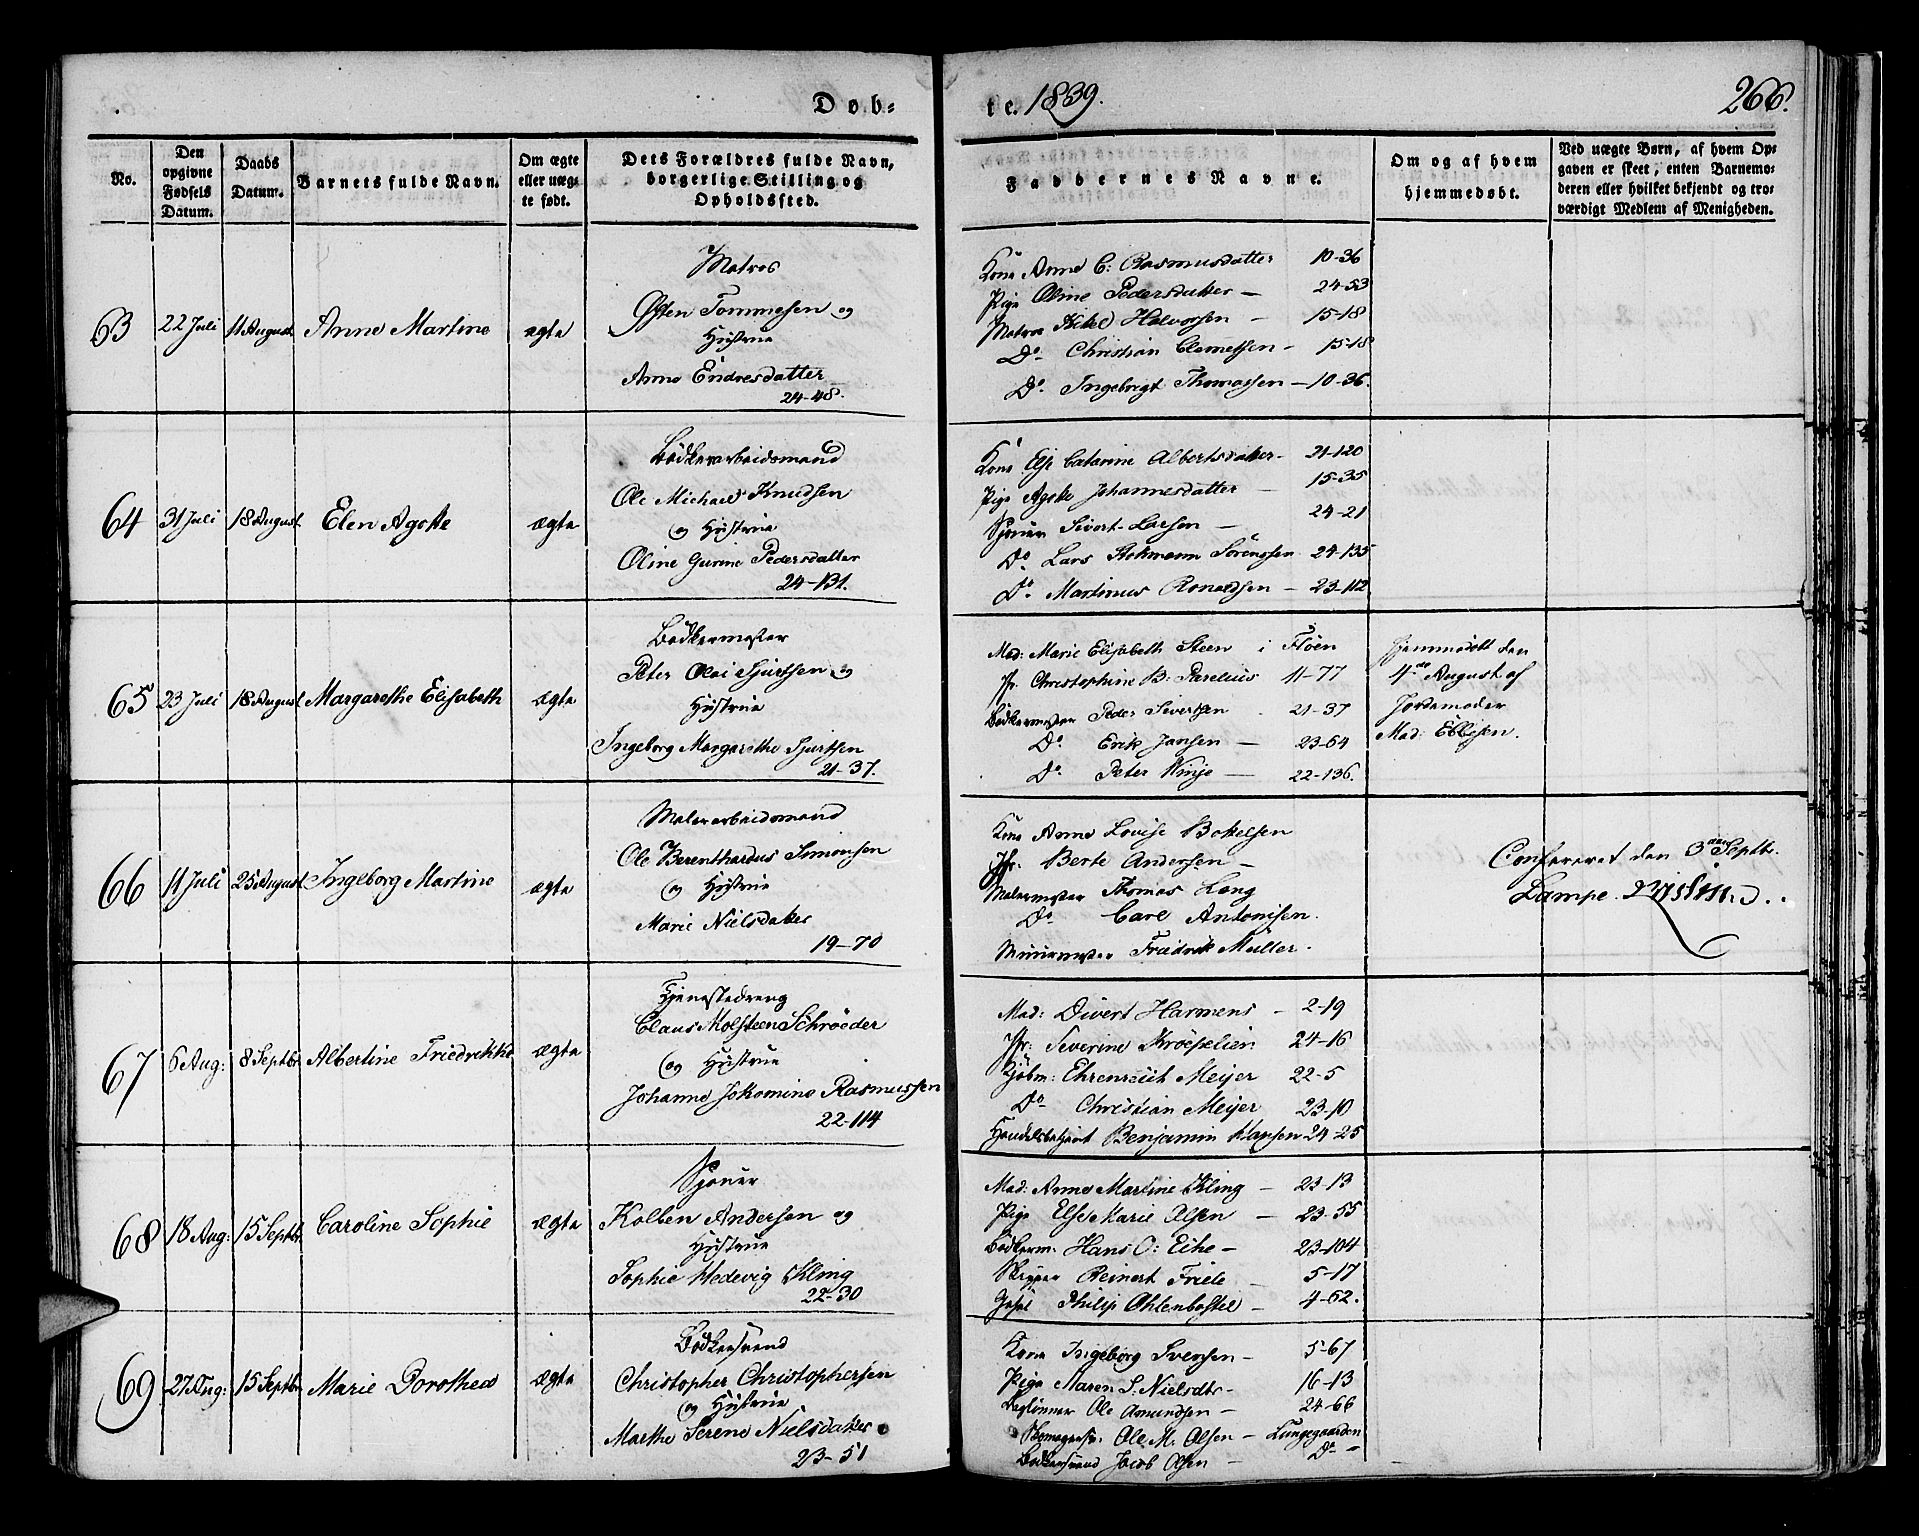 Døb=
te. 1839.
266.
No.
Den opgivne Fødsels Datum.
Daabs Datum.
Barnets fulde Navn.
Om ægte eller uæg-te født.
Dets Forældres fulde Navn, borgerlige Stilling og Opholdssted.
Faddernes Navne.
Om og af hvem hjemmedøbt.
Ved uægte Børn, af hvem Op-gaven er skeet, enten Barnemo-deren eller hvilket bekjendt og tro-værdigt Medlem af Menigheden.
63 22 Juli 11 August Anne Martine ægte
Matros
Østen Tommesen og
Hustrue
Anne Endresdatter
24-48.
Kone Anne C: Rasmusdatter 10-36
Pige Oline Pedersdatter — 24-53
Matros Kikel Halvorsen — 15-18
Do. Christian Clemetsen — 15-18
Do. Ingebregt Thomassen — 10-36.
64 31 Juli 18 August Elen Agethe ægte
Bødkerarbeidsmand
Ole Michael Knudsen
og Hustrue
Oline Gurine Pedersdatter
24-131.
Kone Else Catarine Albertsdatter — 21-120
Pige Agethe Johannesdatter — 15-35
Sjouer Sivert Larsen — 24-21
Do. Lars Stokmann Sørenssen 24-135
Do. Martinus Ronaldsen — 23-112
65 23 Juli 18 August Margarethe Elisabeth ægte
Bødkermester
Peter Olai Sjurtsen og
Hustrue
Ingeborg Margarethe Sjurtsen
21-37.
Mad: Marie Elisabeth Steen i Fløen
Jfr. Christophine B: Parelius 11-77
Bødkermester Peder Sivertsen . 21-37
Do. Erik Jansen — 23-64
Do. Peter Winje — 22-136.
Hjemmedøbt den
4de August af
Jordemoder
Mad: Ellisen.
66 11 Juli 25 August Ingeborg Martine ægte
Malerarbeidsmand
Ole Berenthardus Simonsen
og Hustrue
Marie Nielsdatter
19-70
Kone Anne Lovise Bottelsen
Jfr. Berte Andersen —
Malermester Thomas Lang
Do. Carl Antonisen.
Muurmester Fridrik Müller.
Confereret den 3die Septbr.
Lampe.
67 6 Aug: 8 Septbr Albertine Friedrikke ægte
Tjenestedreng
Claus Molsteen Schrøeder
og Hustrue
Johanne Jokomine Rasmussen
22-114
Mad: Divert Harmens — 2-19
Jfr: Severine Krøepelien 24-16
Kjøbm: Ehrenreich Meyer 22-5
Do Christian Meyer 23-10
Handelsbetjent Benjamin Hansen 24-25
68 18 Aug: 15 Septbr Caroline Sophie ægte
Sjouer
Kolben Andersen og
Hustrue
Sophie Hedevig Kling
22-30
Mad: Anne Martine Kling — 23-13
Pige Else Marie Olsen — 23-55
Bødkerm. Hans O: Eihe — 23-104
Skipper Reinert Friele — 5-17
Gesel Philip Ohlenbostel — 4-62.
69 27 Aug: 15 Septbr Marie Dorothea ægte
Bødkersvend
Christopher Christophersen
og Hustrue
Marthe Serene Nielsdatter
23-51
Kone Ingeborg Svensen — 5-67
Pige Maren S. Nielsdtr — 16-13
Daglønner Ole Amundsen — 24-66
Ole M. Olsen — Lungegaarden
Bødkersvend Jacob Olsen — Do —